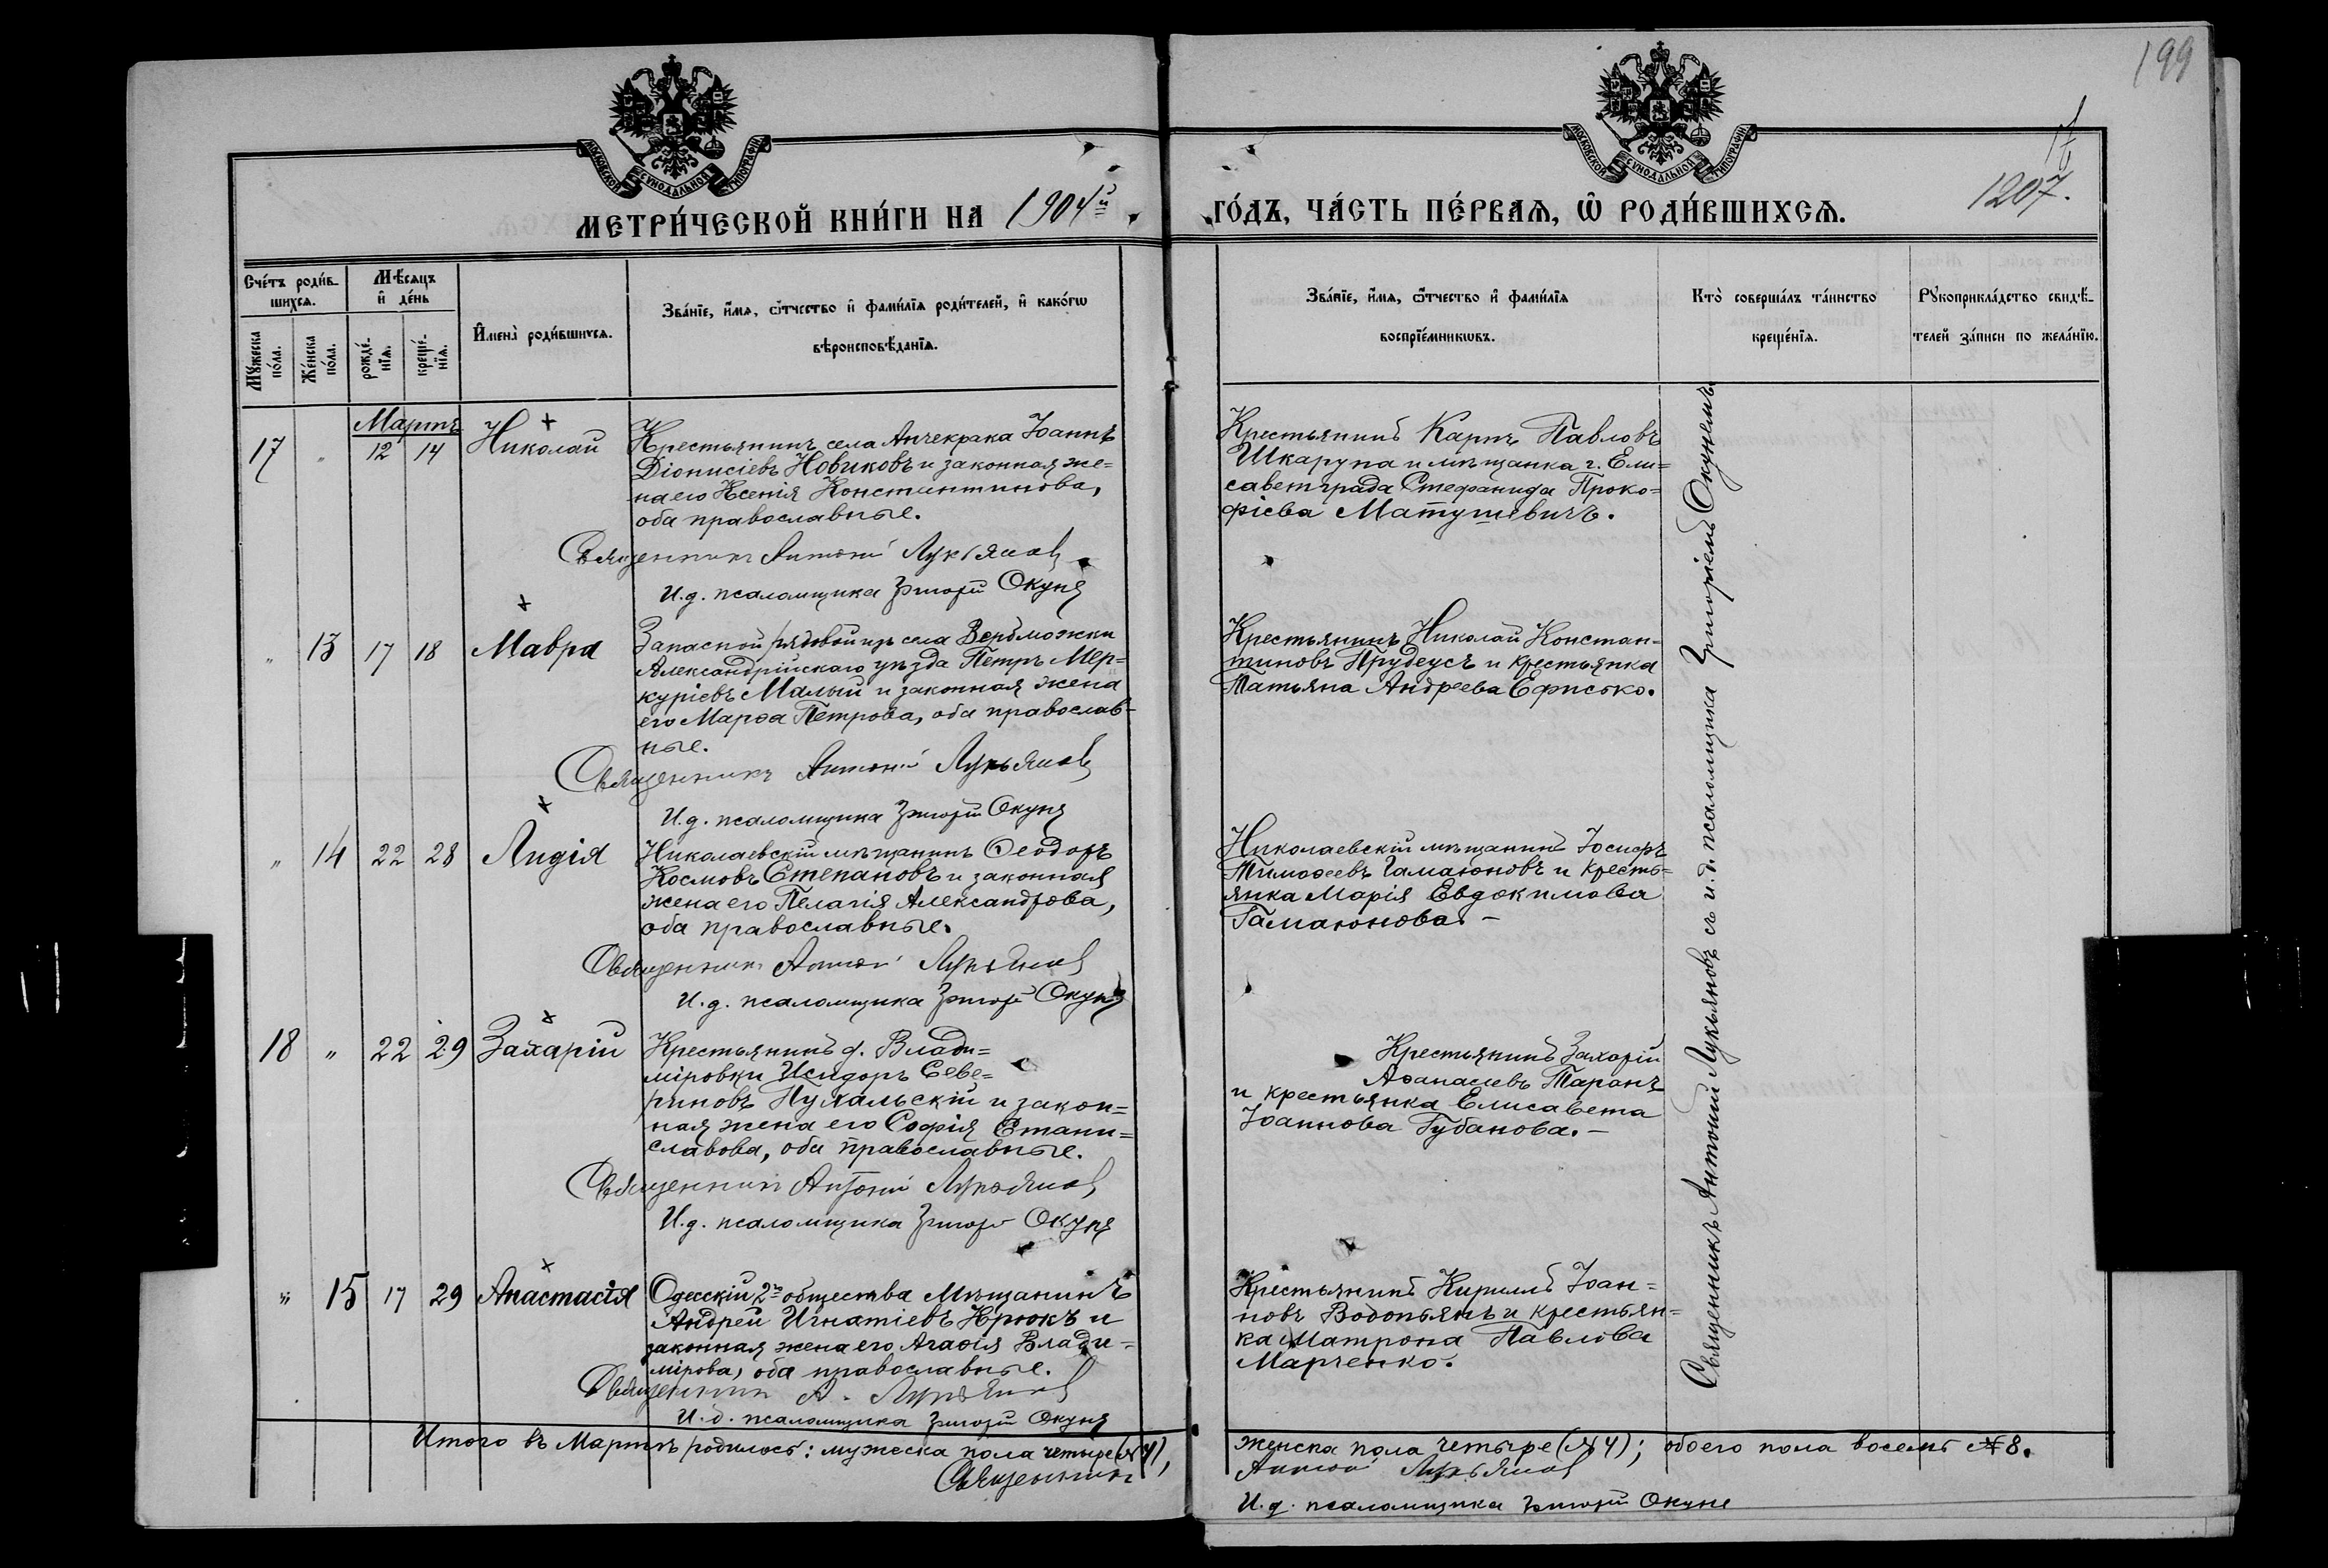 199
176
1207.
МОСКОВСКОЙ СѴНОДАЛЬНОЙ ТИПОГРАФІИ
МОСКОВСКОЙ СѴНОДАЛЬНОЙ ТИПОГРАФІИ
МЕТРИ́ЧЕСКОЙ КНИ́ГИ НА 1904й
ГО́ДЪ, ЧА́СТЬ ПЕ́РВАѦ, Ѡ҆ РОДИ́ВШИХСѦ.
Сче́тъ роди́в-
шихсѧ.
Мꙋ́жеска по́ла.
Же́нска по́ла.
Мѣ́сѧцъ и҆ де́нь
рожде́-нїѧ.
креще́-нїѧ.
И҆мена̀ роди́вшихсѧ.
Зва́нїе, и҆́мѧ, ѻ҆́тчество и҆ фами́лїѧ роди́телей, и҆ како́гѡ
вѣроисповѣ́данїѧ.
Зва́нїе, и҆́мѧ, ѻ҆́тчество и҆ фами́лїѧ
воспрїе́мникѡвъ.
Кто̀ соверша́лъ та́инство
креще́нїѧ.
Рꙋкоприкла́дство свидѣ́-
телей за́писи по жела́нїю.
Мартъ
17 " 12 14 Николай
Крестьянинъ села Анчекрака Іоаннъ
Діонисіевъ Новиковъ и законная же=
на его Ксенія Константинова,
оба православные.
Священникъ Антоній Лукьянов
И.д. псаломщика Григорій Окуня
Крестьянинъ Карпъ Павловъ
Шкарупа и мѣщанка г. Ели=
саветграда Стефанида Проко=
фіева Матушевичъ.
" 13 17 18 Мавра
Запасной рядовой изъ села Вербможки
Александрійскаго уѣзда Петръ Мер=
куріевъ Малый и законная жена
его Марѳа Петрова, оба православ-
ные.
Священникъ Антоній Лукьянов
И.д. псаломщика Григорій Окуня
Крестьянинъ Николай Констан-
тиновъ Прудеусъ и крестьянка
Татьяна Андреева Ефисько.
" 14 22 28 Лидія
Николаевскій мѣщанинъ Ѳеодоръ
Космовъ Степановъ и законная
жена его Пелагія Александрова,
оба православные.
Священникъ Антоній Лукьянов
И.д. псаломщика Григорій Окуня
Николаевскій мѣщанинъ Іосифъ
Тимоѳеевъ Гамаюновъ и кресть=
янка Марія Евдокимова
Гамаюнова. -
18 " 22 29 Захарій
Крестьянинъ д. Влади=
міровки Исидоръ Севе=
риновъ Пухальскій и закон=
ная жена его Софія Стани=
славова, оба православные.
Священникъ Антоній Лукьянов
И.д. псаломщика Григорій Окуня
Крестьянинъ Захарій
Аѳанасіевъ Таранъ
и крестьянка Елисавета
Іоаннова Губанова. -
" 15 17 29 Анастасія
Одесскій 2го общества мѣщанинъ
Андрей Игнатіевъ Крюкъ и
законная жена его Агаѳія Влади=
мірова, оба православные.
Священникъ А. Лукьянов
И.д. псаломщика Григорій Окуня
Крестьянинъ Кириллъ Іоан=
новъ Водопьянъ и крестьян=
ка Матрона Павлова
Марченко.
Священникъ Антоній Лукьяновъ съ и.д. псаломщика Григоріемъ Окунемъ.
Итого въ Мартѣ родилось: мужеска пола четыре (№ 4),
женска пола четыре (№ 4); обоего пола восемь № 8.
Священникъ Антоній Лукьянов
И.д. псаломщика Григорій Окуня